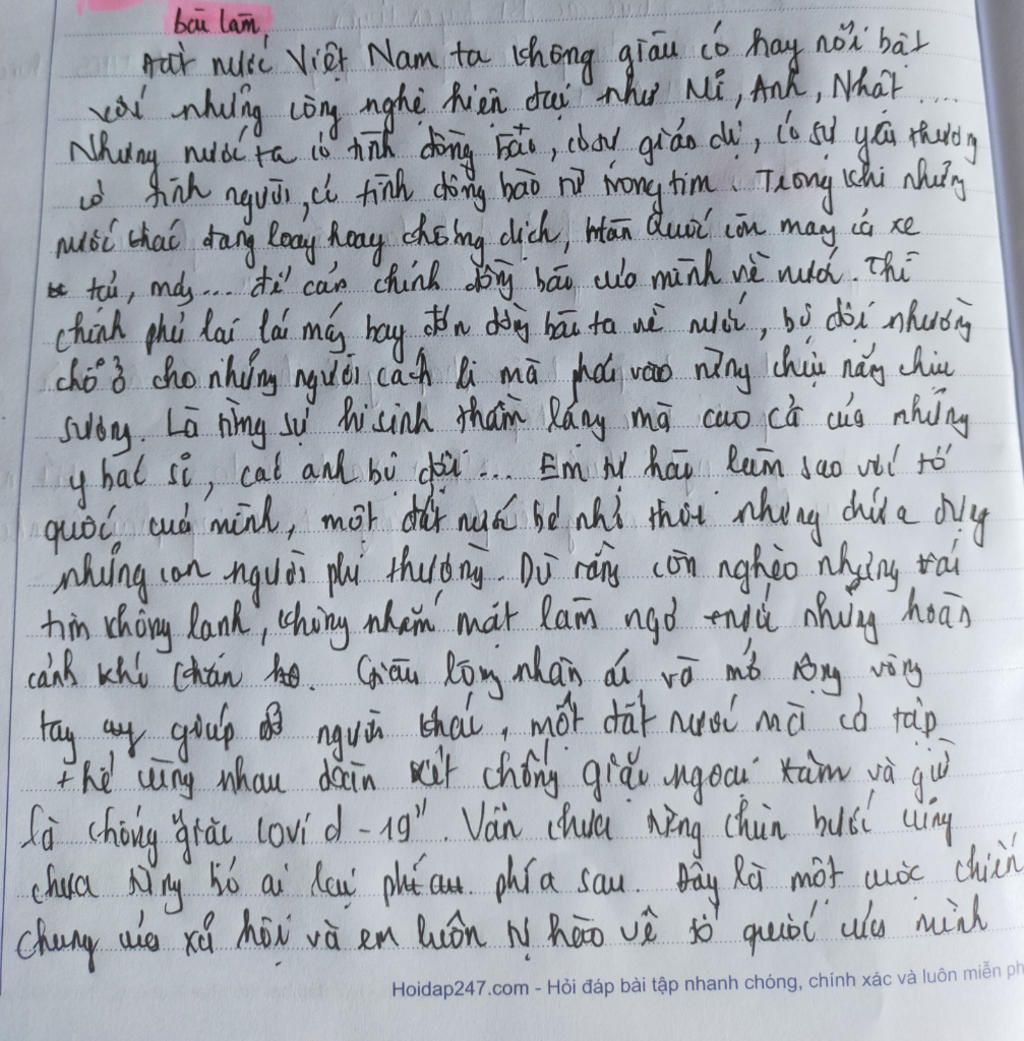 bài làm
Đất nước Việt Nam ta không giàu có hay nổi bật
với những công nghệ hiện đại như Mĩ, Anh, Nhật ....
Nhưng nước ta có tình đồng bào, có sự giáo dị, có sự yêu thương
có tình người, có tình đồng bào từ trong tim. Trong khi những
nước khác đang loay hoay chống dịch, Hàn Quốc còn mang cả xe
tủ, máy... để cản chính đồng bào của mình về nước. Thì
chính phủ lại lái máy bay đón đồng bào ta về nước, bộ đội nhường
chỗ ở cho những người cách li mà phải vào rừng chịu nắng chịu
sương. Là từng sự hi sinh thầm lặng mà cao cả của những
y bác sĩ, các anh bộ đội... Em tự hào lắm sao với tổ
quốc của mình, một đất nước bé nhỏ thôi nhưng chứa đựng
những con người phi thường. Dù rằng còn nghèo nhưng trái
tim không lạnh, không nhắm mắt làm ngơ trước những hoàn
cảnh khó khăn. Giàu lòng nhân ái và mở rộng vòng
tay giúp đỡ người khác, một đất nước mà cả tập
thể cùng nhau đoàn kết chống giặc ngoại xâm và giờ
là chống "giặc covid-19". Vẫn chưa từng chùn bước cũng
chưa từng bỏ ai lại phía sau. Đây là một cuộc chiến
chung của xã hội và em luôn tự hào về tổ quốc của mình
Hoidap247.com - Hỏi đáp bài tập nhanh chóng, chính xác và luôn miễn ph